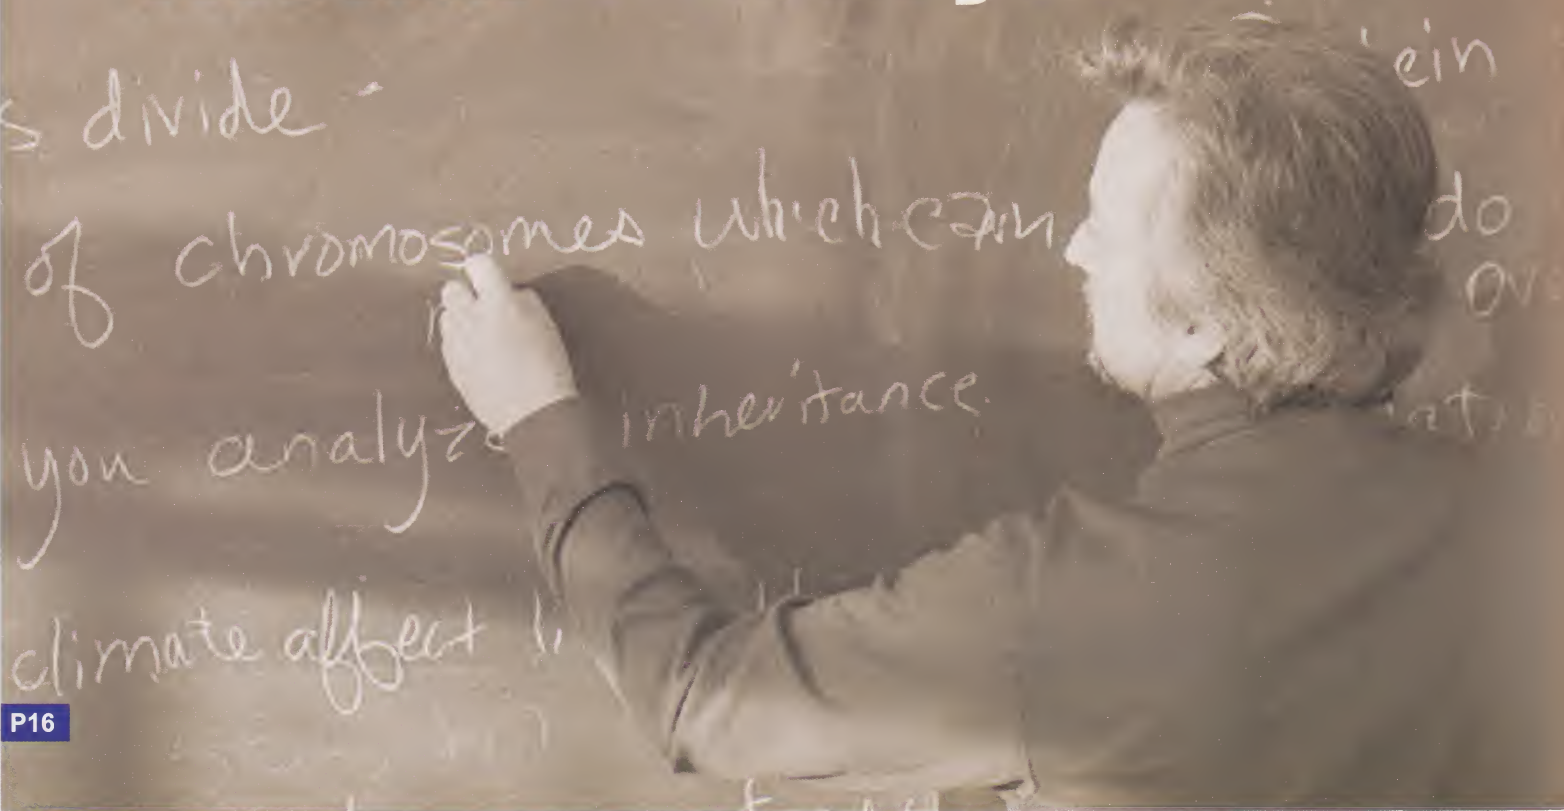 s divide -
ein
of chromosomes which can
do
you analyze inheritance.
climate affect
P16